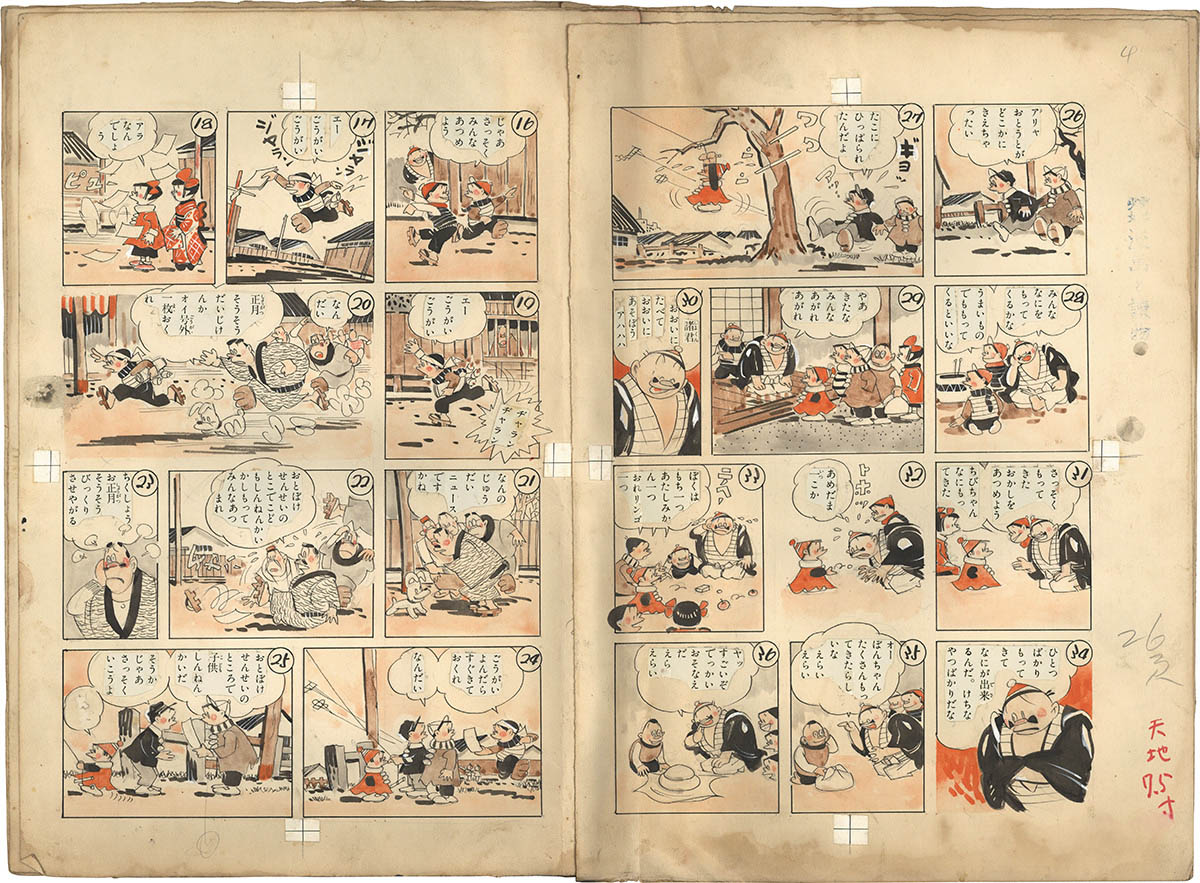 16
じゃあ
さっそく
みんな
あつめ
よう
17
エー
ごうがい
ごうがい
ジャラン
ジャラン
18
アラ
なん
でしょ
う
ピュー
19
エー
ごうがい
ヂャラン
ヂャラン
20
なん
だい
正月
そうそう
だいじけ
んか
オーイ号外
一枚おく
れ
21
なんの
じゅう
だい
ニュース
です
かね
22
おとぼけ
せんせいの
とこでこど
もしんねんかい
かしもって
みんなあつ
まれ
23
ちくしょう
お正月
そうそう
びっくり
させやがる
24
ごうがい
よんだら
すぐきて
おくれ
なんだい
25
おとぼけ
せんせいの
ところで
子供
しんねん
かいだ
そうか
じゃあ
さっそく
いこうよ
4
26
アリャ
おとうとが
どこかに
きえちゃ
ったい
27
たこに
ひっぱられ
たんだよ
ギョッ
ワワワ
28
みんな
なにを
もって
くるかな
うまいもの
でももって
くるといいな
29
やあ
きたな
みんな
あがれ
あがれ
30
諸君
おおいに
たべて
おおいに
あそぼう
アハハハ
31
さっそく
もって
きた
おかしを
あつめよう
ちびちゃん
なにもっ
てきた
32
あめだま
二こか
33
ぼくは
もち一つ
あたしみか
ん一つ
おれリンゴ
一つ
34
ひとつ
ばかり
もって
きて
なにが出来
るんだ。けちな
やつばかりだな
35
オー
ぼんちゃん
たくさんもっ
てきたらし
いな
えらい
えらい
36
ヤッ
すごいぞ
でっかい
おそなえ
だ
えらい
えらい
天地
7.5寸